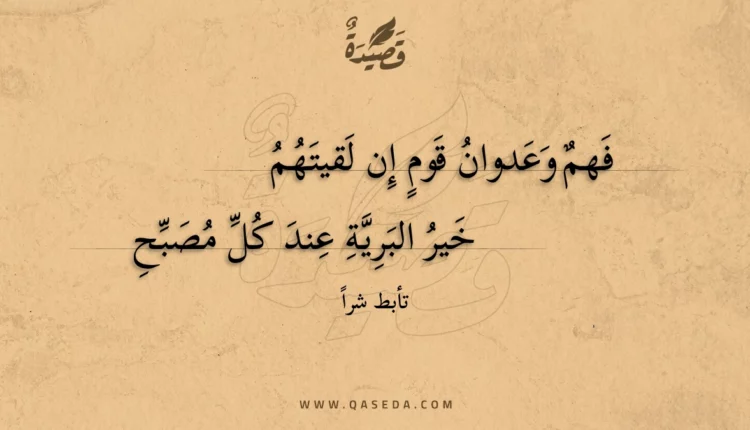 قَصِيْدَةٌ
فَهمٌ وَعَدوانُ قَومٍ إِن لَقيتَهُمُ
خَيرُ البَرِيَّةِ عِندَ كُلِّ مُصَبِّحِ
تأبط شراً
WWW.QASEDA.COM